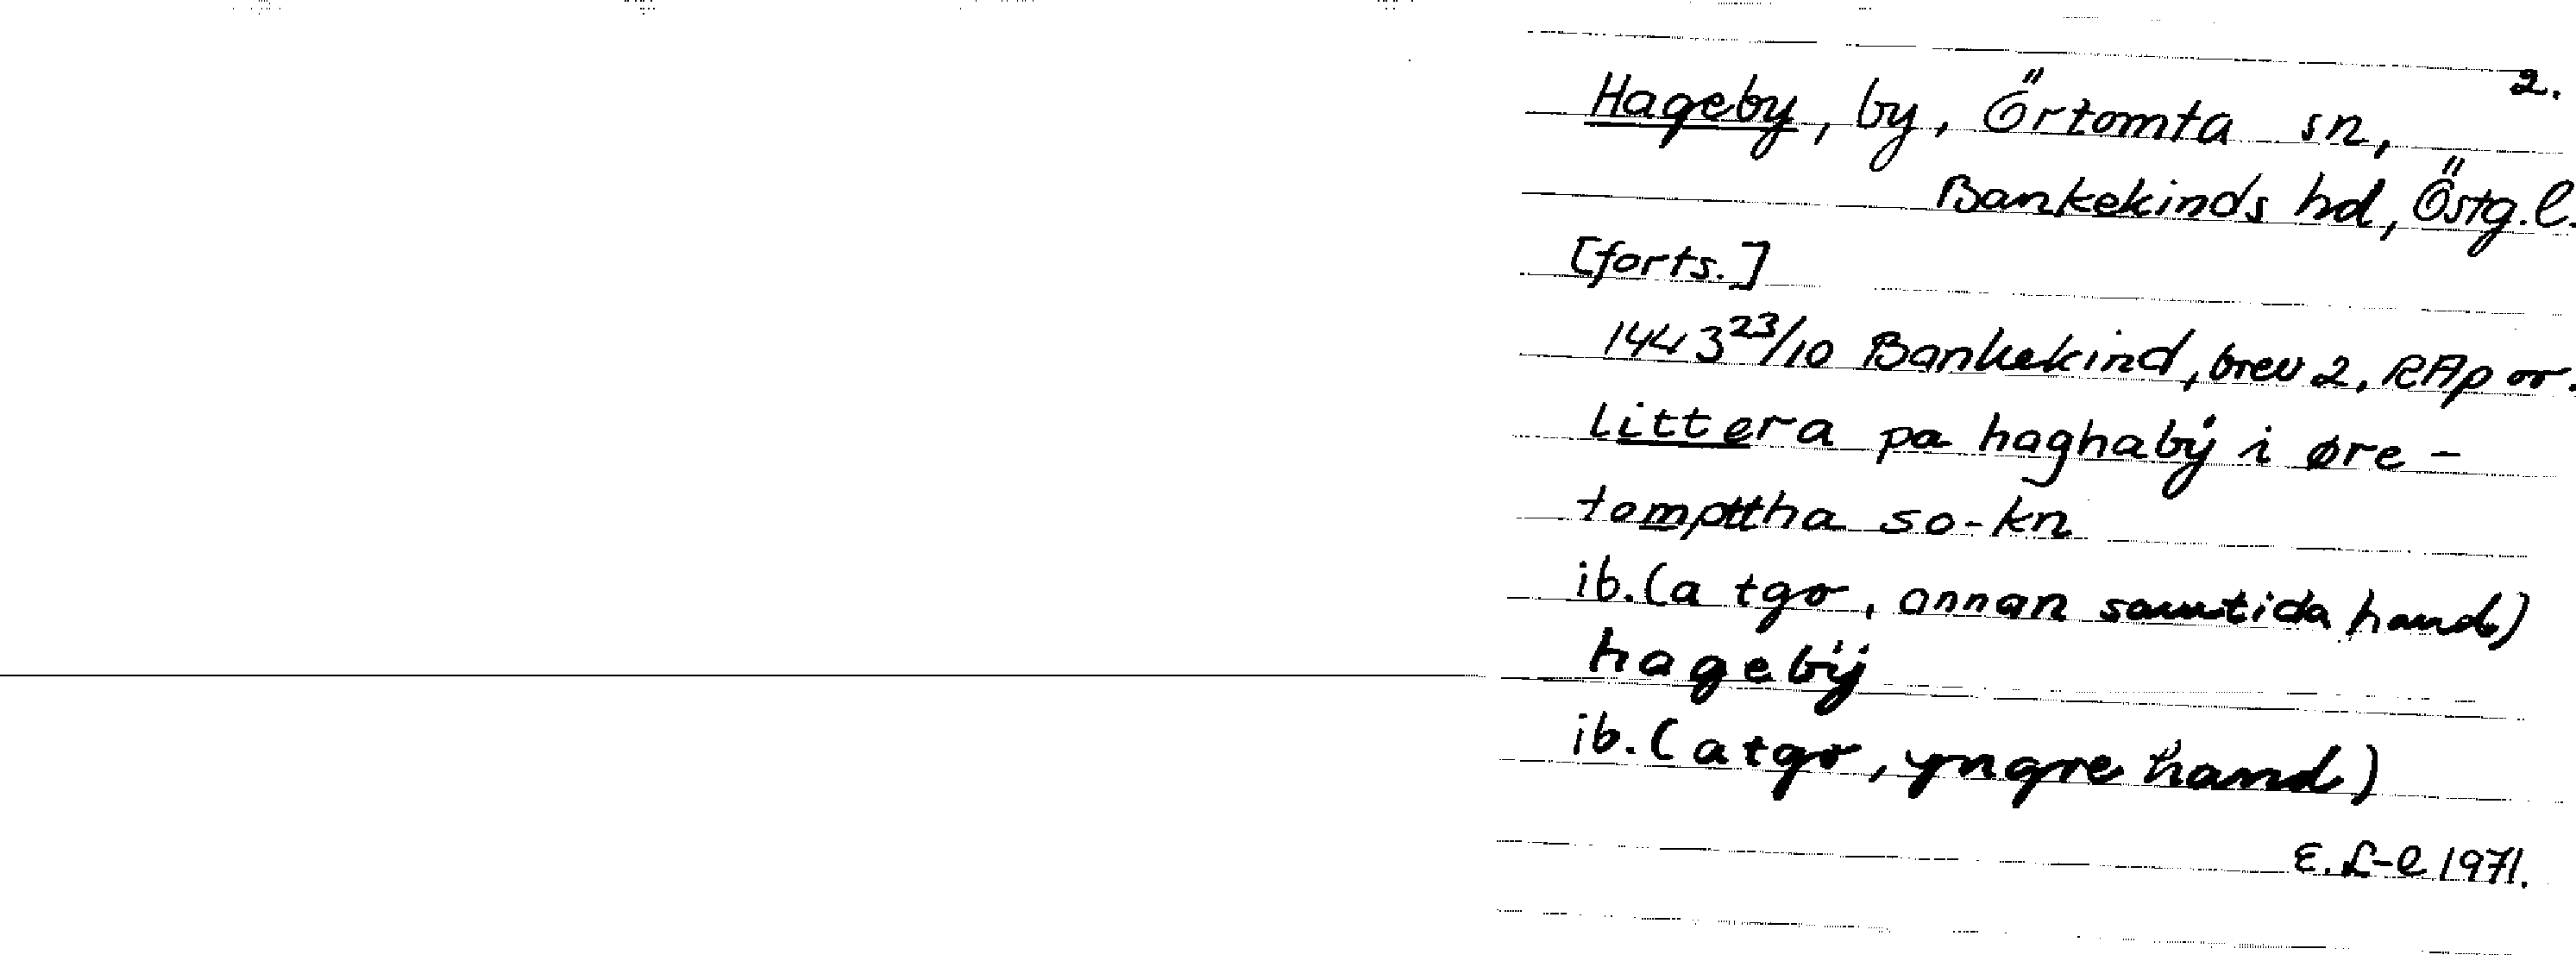 2.
Hageby, by, Örtomta sn,
Bankekinds hd, Östg.l.
[forts.]
1443 23/10 Bankekind, brev 2, RAp or.
littera pa haghabẏ i øre-
tompttha so-kn
ib. (a tgo, annan samtida hand)
hagebÿ
ib. (a tgo, yngre hand)
E. L-l 1971.